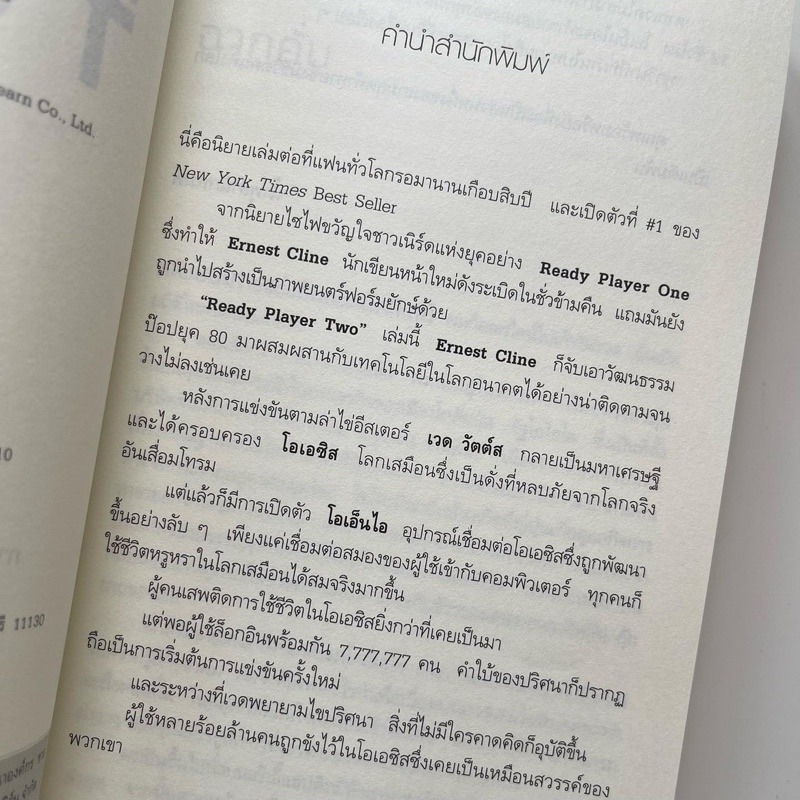 earn Co., Ltd.
10
รี 11130
คำนำสำนักพิมพ์
นี่คือนิยายเล่มต่อที่แฟนทั่วโลกรอมานานเกือบสิบปี และเปิดตัวที่ #1 ของ
New York Times Best Seller
จากนิยายไซไฟขวัญใจชาวเนิร์ดแห่งยุคอย่าง Ready Player One
ซึ่งทำให้ Ernest Cline นักเขียนหน้าใหม่ดังระเบิดในชั่วข้ามคืน แถมมันยัง
ถูกนำไปสร้างเป็นภาพยนตร์ฟอร์มยักษ์ด้วย
“Ready Player Two” เล่มนี้ Ernest Cline ก็จับเอาวัฒนธรรม
ป๊อปยุค 80 มาผสมผสานกับเทคโนโลยีในโลกอนาคตได้อย่างน่าติดตามจน
วางไม่ลงเช่นเคย
หลังการแข่งขันตามล่าไข่อีสเตอร์ เวด วัตต์ส กลายเป็นมหาเศรษฐี
และได้ครอบครอง โอเอซิส โลกเสมือนซึ่งเป็นดั่งที่หลบภัยจากโลกจริง
อันเสื่อมโทรม
แต่แล้วก็มีการเปิดตัว โอเอ็นไอ อุปกรณ์เชื่อมต่อโอเอซิสซึ่งถูกพัฒนา
ขึ้นอย่างลับ ๆ เพียงแค่เชื่อมต่อสมองของผู้ใช้เข้ากับคอมพิวเตอร์ ทุกคนก็
ใช้ชีวิตหรูหราในโลกเสมือนได้สมจริงมากขึ้น
ผู้คนเสพติดการใช้ชีวิตในโอเอซิสยิ่งกว่าที่เคยเป็นมา
แต่พอผู้ใช้ล็อกอินพร้อมกัน 7,777,777 คน คำใบ้ของปริศนาก็ปรากฏ
ถือเป็นการเริ่มต้นการแข่งขันครั้งใหม่
และระหว่างที่เวดพยายามไขปริศนา สิ่งที่ไม่มีใครคาดคิดก็อุบัติขึ้น
ผู้ใช้หลายร้อยล้านคนถูกขังไว้ในโอเอซิสซึ่งเคยเป็นเหมือนสวรรค์ของ
พวกเขา